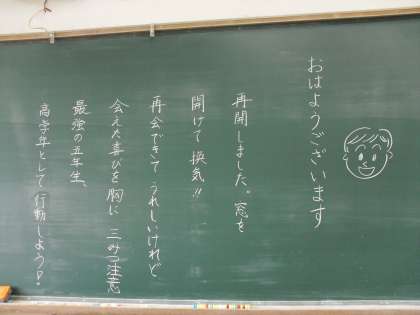 おはようございます
再開しました。窓を
開けて換気!!
再会できてうれしいけれど
会えた喜びを胸に 三みつ注意
最強の五年生、
高学年として行動しよう!